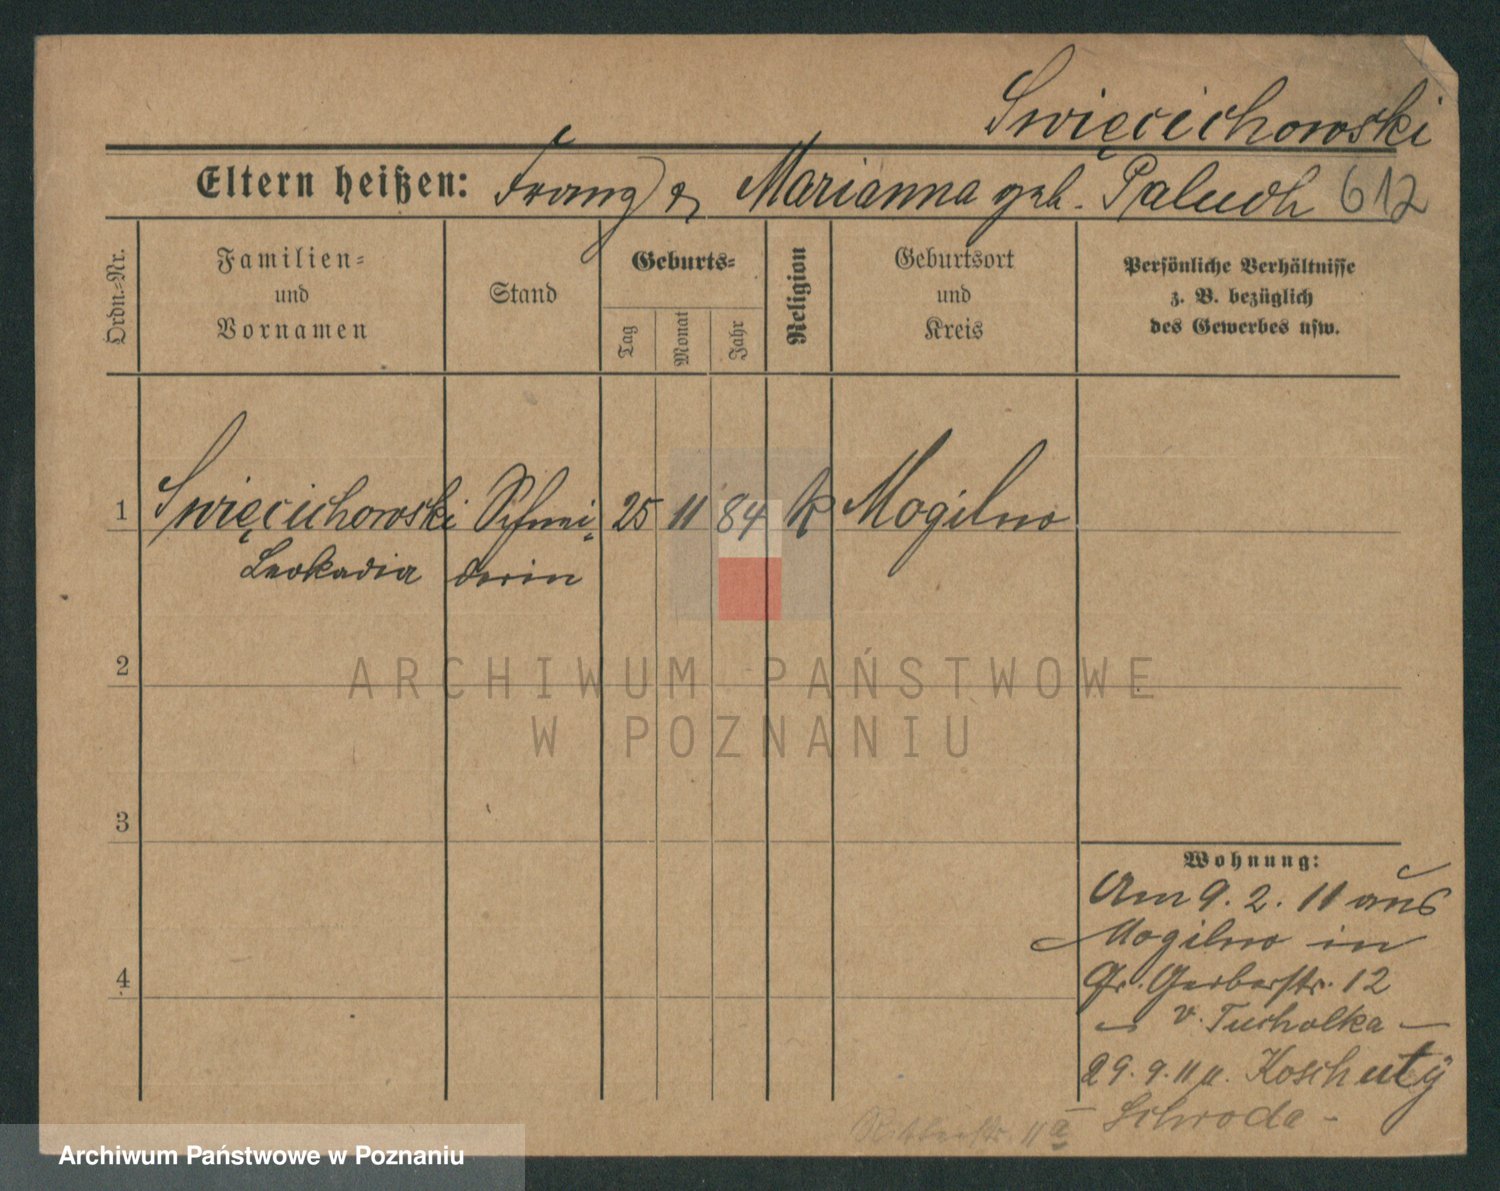 Święcichowski
Eltern heißen: Franz & Marianna geb. Paluch 612
Ordn.-Nr.
Familien-
und
Vornamen
Stand
Geburts-
Tag
Monat
Jahr
Religion
Geburtsort
und
Kreis
Persönliche Verhältnisse
z. B. bezüglich
des Gewerbes usw.
1 Święcichowski Schnei- 25 11 84 k Mogilno
Leokadia derin
2
3
4
Wohnung:
Am 9. 2. 11 aus
Mogilno in
Gr. Gerberstr. 12
v. Tucholka
29. 9. 11 n. Koschuty
Schroda
11a
ARCHIWUM PAŃSTWOWE
W POZNANIU
Archiwum Państwowe w Poznaniu